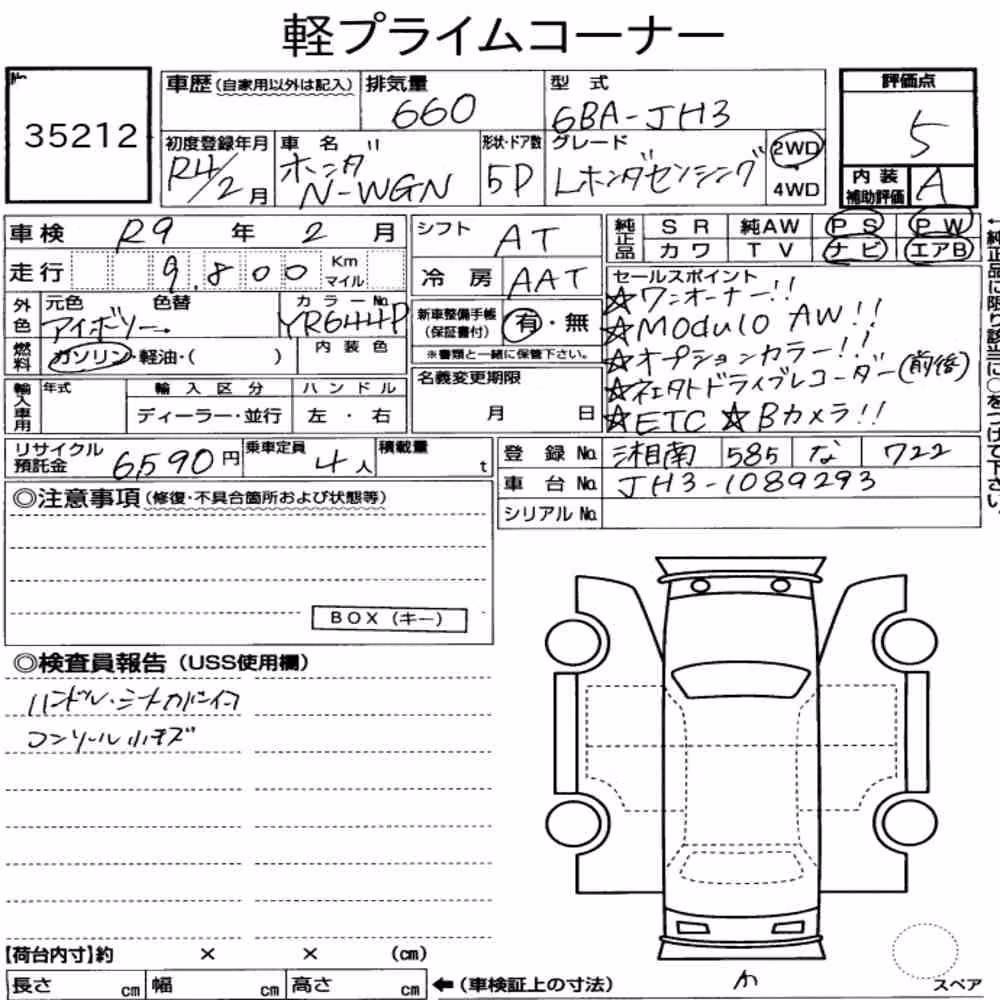 軽プライムコーナー
No. 35212
車歴 (自家用以外は記入) 排気量 660 型式 6BA-JH3
初度登録年月 R4/2月 車名 ホンダ N-WGN 形状・ドア数 5D グレード Lホンダセンシング 2WD 4WD
評価点 5
内装補助評価 A
車検 R9年 2月
走行 9,800 Km マイル
外色 元色 アイボリー 色替 カラーNo. YR644P
燃料 ガソリン・軽油・( ) 内装色
輸入車用 年式 輸入区分 ディーラー・並行 ハンドル 左・右
シフト AT
冷房 AAT
新車整備手帳 (保証書付) 有・無
※書類と一緒に保管下さい。
名義変更期限 月 日
純正品 SR 純AW PS PW
カワ TV ナビ エアB
セールスポイント
☆ワンオーナー!!
☆Modulo AW!!
☆オプションカラー!!
ドライブレコーダー(前後)
☆ETC ☆Bカメラ!!
←純正品に限り該当に○をつけて下さい。
リサイクル預託金 6,590円 乗車定員 4人 積載量 t
登録No. 湘南 585 な 722
車台No. JH3-1089293
シリアルNo.
◎注意事項 (修復・不具合箇所および状態等)
BOX(キー)
◎検査員報告 (USS使用欄)
ハンドル・シートカバーイタ
コンソール小キズ
【荷台内寸】約 × × (cm)
長さ cm 幅 cm 高さ cm ←(車検証上の寸法)
スペア